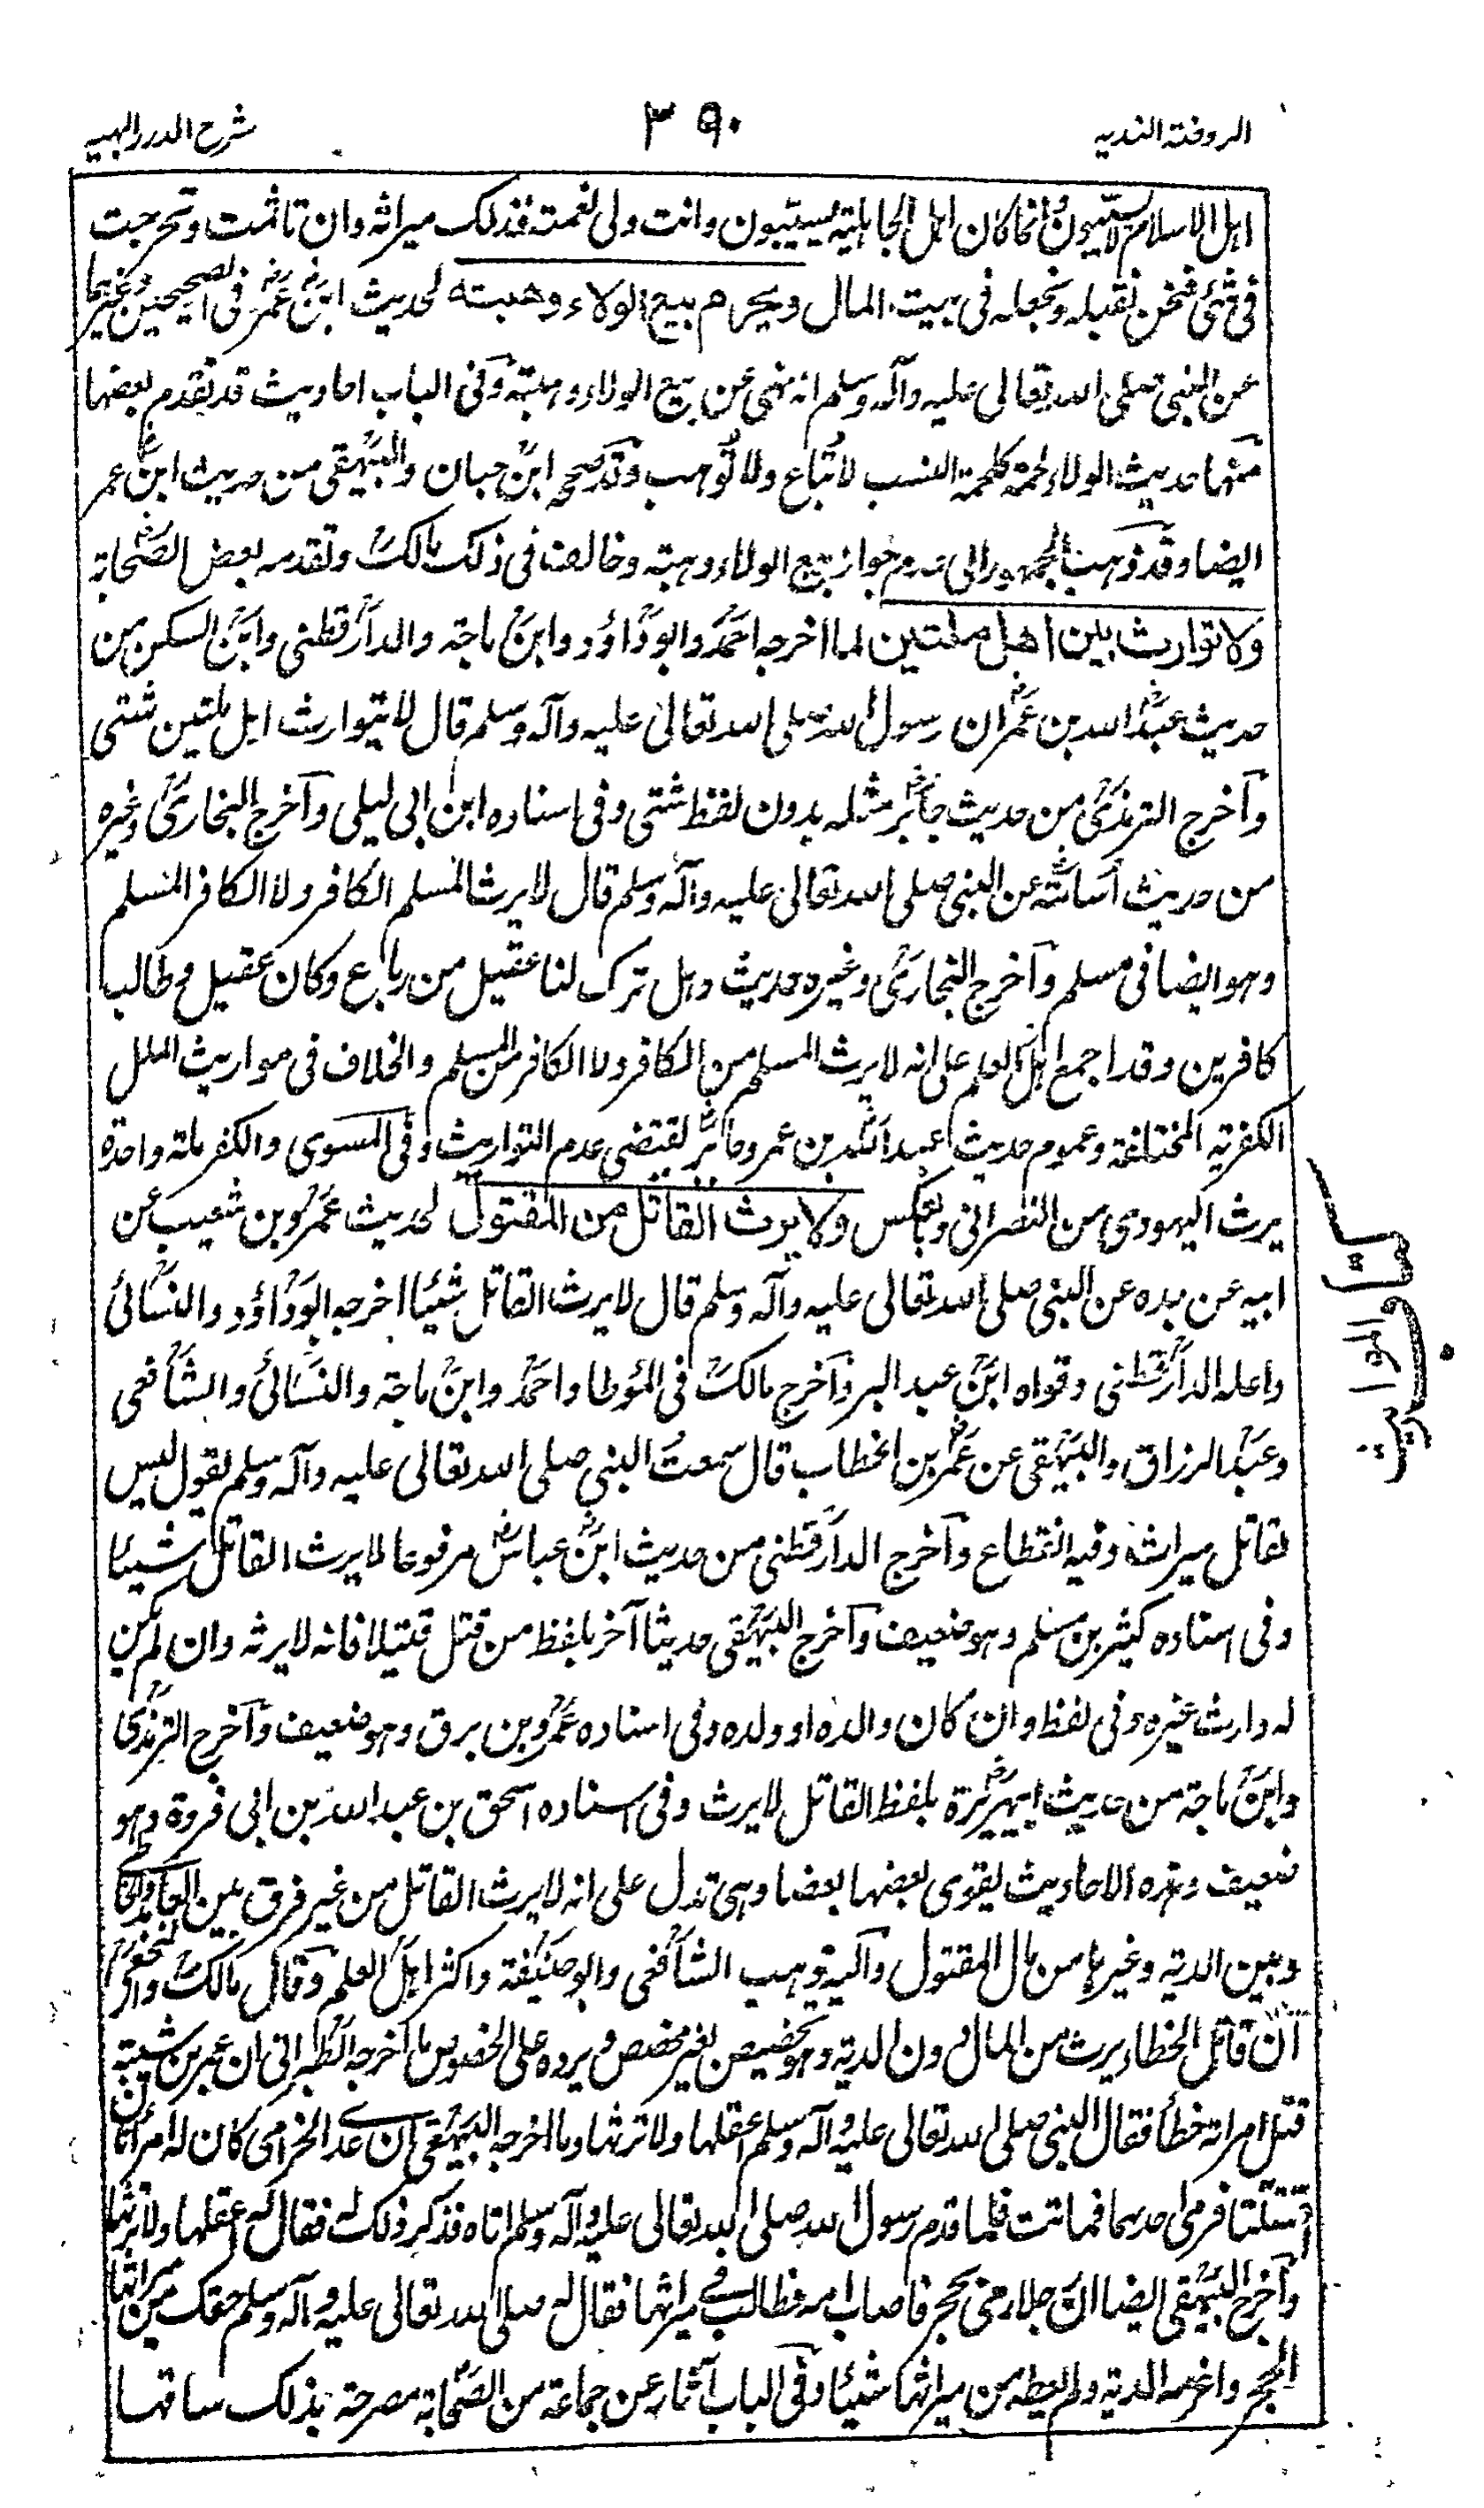 الروضة الندية
٣٩٠
شرح الدرر البهية
اهل الاسلام لا يسيبون انما كان اهل الجاهلية يسيبون وانت ولى نعمته فذلك ميراثه وان تاثمت وتحرجت
فى شئ فنحن نقبله ونجعله فى بيت المال ويحرم بيع الولاء وهبته لحديث ابن عمر فى الصحيحين وغيرهما
عن النبى صلى الله تعالى عليه وآله وسلم انه نهى عن بيع الولاء وهبته وفى الباب احاديث قد تقدم بعضها
منها حديث الولاء لحمة كلحمة النسب لا تباع ولا توهب وقد صححه ابن حبان والبيهقى من حديث ابن عمر
ايضا وقد ذهب الجمهور الى عدم جواز بيع الولاء وهبته وخالف فى ذلك مالك وتقدمه بعض الصحابة
ولا توارث بين اهل ملتين لما اخرجه احمد وابو داؤد وابن ماجة والدارقطنى وابن السكن من
حديث عبد الله بن عمر ان رسول الله صلى الله تعالى عليه وآله وسلم قال لا يتوارث اهل ملتين شتى
وآخرج الترمذى من حديث جابر مثله بدون لفظ شتى وفى اسناده ابن ابى ليلى وآخرج البخارى وغيره
من حديث اسامة عن النبى صلى الله تعالى عليه وآله وسلم قال لا يرث المسلم الكافر ولا الكافر المسلم
وهو ايضا فى مسلم وآخرج البخارى وغيره حديث وهل ترك لنا عقيل من رباع وكان عقيل وطالب
كافرين وقد اجمع اهل العلم على انه لا يرث المسلم من الكافر ولا الكافر من المسلم والخلاف فى مواريث الملل
الكفرية المختلفة وعموم حديث عبد الله بن عمر وجابر يقتضى عدم التوارث وفى المسوى والكفر ملة واحدة
يرث اليهودى من النصرانى وبالعكس ولا يرث القاتل من المقتول لحديث عمرو بن شعيب عن
ابيه عن جده عن النبى صلى الله تعالى عليه وآله وسلم قال لا يرث القاتل شيئا اخرجه ابو داؤد والنسائى
واعله الدارقطنى وقواه ابن عبد البر وآخرج مالك فى المؤطا واحمد وابن ماجة والنسائى والشافعى
وعبد الرزاق والبيهقى عن عمر بن الخطاب قال سمعت النبى صلى الله تعالى عليه وآله وسلم يقول ليس
لقاتل ميراث وفيه انقطاع وآخرج الدارقطنى من حديث ابن عباس مرفوعا لا يرث القاتل شيئا
وفى اسناده كثير بن مسلم وهو ضعيف وآخرج البيهقى حديثا آخر بلفظ من قتل قتيلا فانه لا يرثه وان لم يكن
له وارث غيره وفى لفظ وان كان والده او ولده وفى اسناده عمرو بن برق وهو ضعيف وآخرج الترمذى
وابن ماجة من حديث ابيهريرة بلفظ القاتل لا يرث وفى اسناده اسحق بن عبد الله بن ابى فروة وهو
ضعيف وهذه الاحاديث يقوى بعضها بعضا وهى تدل على انه لا يرث القاتل من غير فرق بين العامد والخاطئ
وبين الدية وغيرها من مال المقتول واليه ذهب الشافعى وابو حنيفة واكثر اهل العلم وقال مالك والنخعى
ان قاتل الخطا يرث من المال دون الدية وهو تخصيص بغير مخصص ويرده على الخصوص ما اخرجه الطبرانى ان عمر بن شيبة
قتل امراته خطأ فقال النبى صلى الله تعالى عليه وآله وسلم اعقلها ولا ترثها وما اخرجه البيهقى ان عديا الخزامى كان له امرأتان
اقتتلتا فرمى احدىهما فماتت فلما قدم رسول الله صلى الله تعالى عليه وآله وسلم اتاه فذكر ذلك له فقال له اعقلها ولا ترثها
وآخرج البيهقى ايضا ان رجلا رمى بحجر فاصاب امه فطالب فى ميراثها فقال له صلى الله تعالى عليه وآله وسلم حقك من ميراثها
الحجر واغرمه الدية ولم يعطه من ميراثها شيئا وفى الباب آثار عن جماعة من الصحابة مصرحة بذلك ساقها